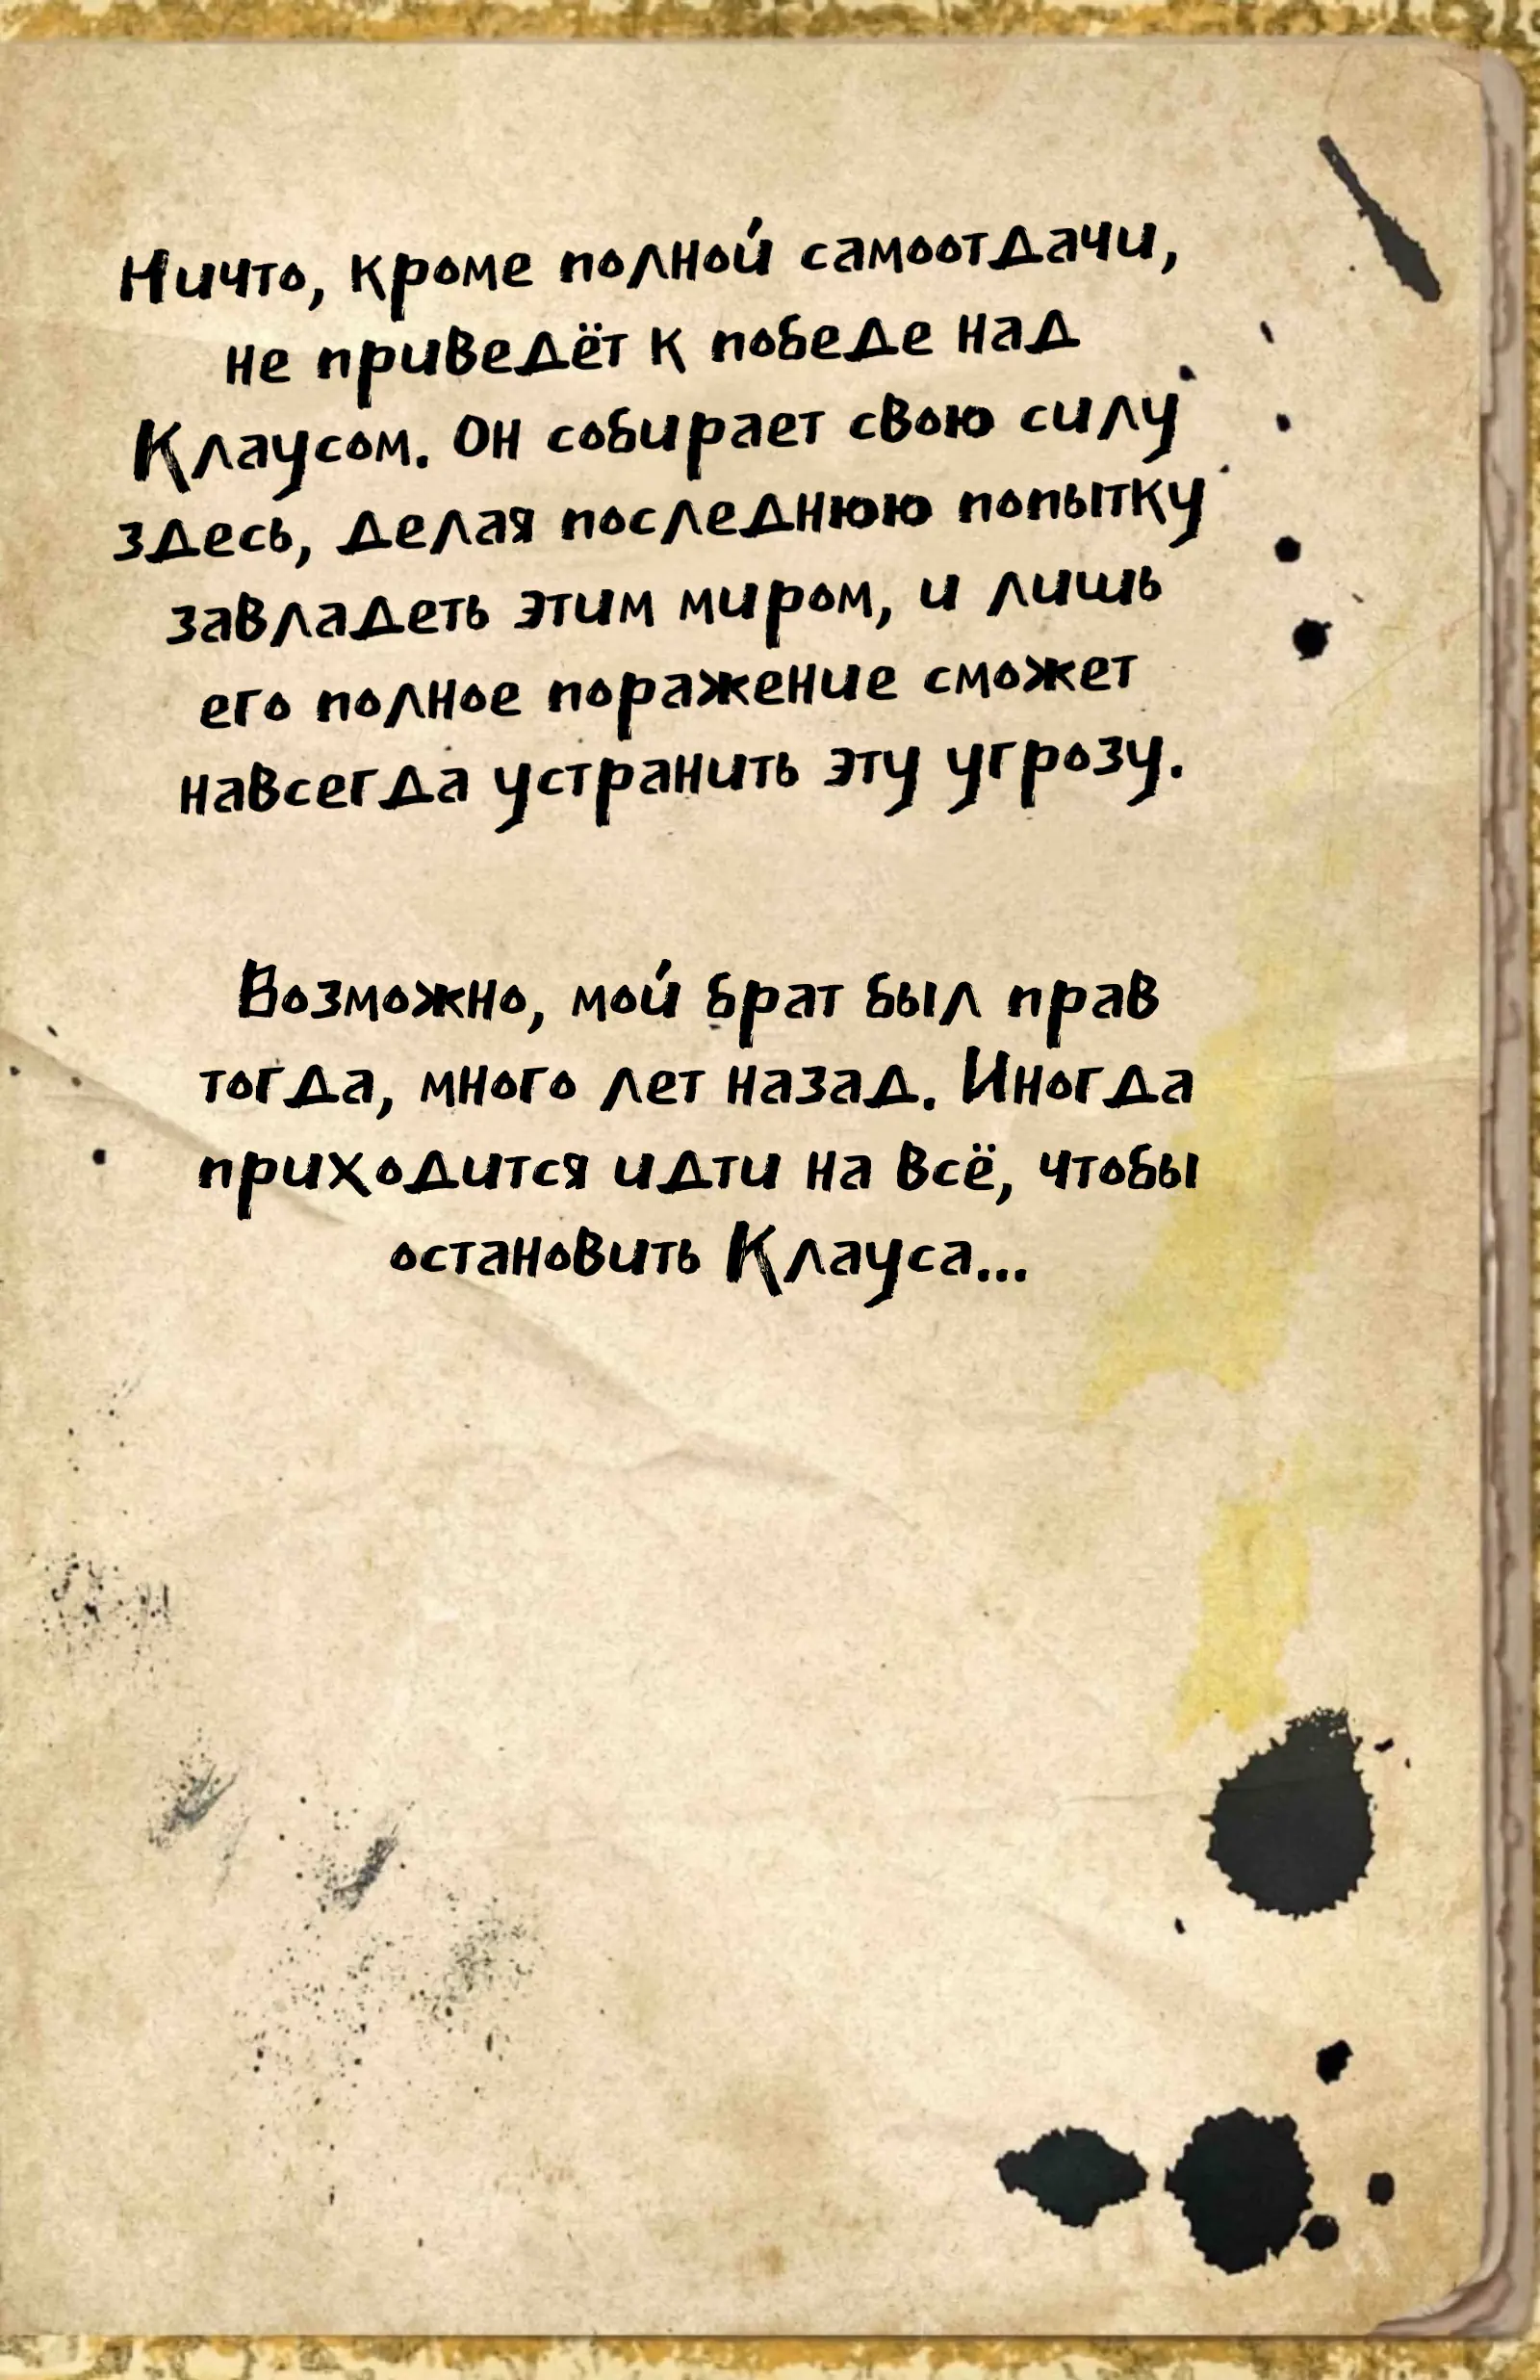 Ничто, кроме полной самоотдачи,
не приведёт к победе над
Клаусом. Он собирает свою силу
здесь, делая последнюю попытку
завладеть этим миром, и лишь
его полное поражение сможет
навсегда устранить эту угрозу.
Возможно, мой брат был прав
тогда, много лет назад. Иногда
приходится идти на всё, чтобы
остановить Клауса...